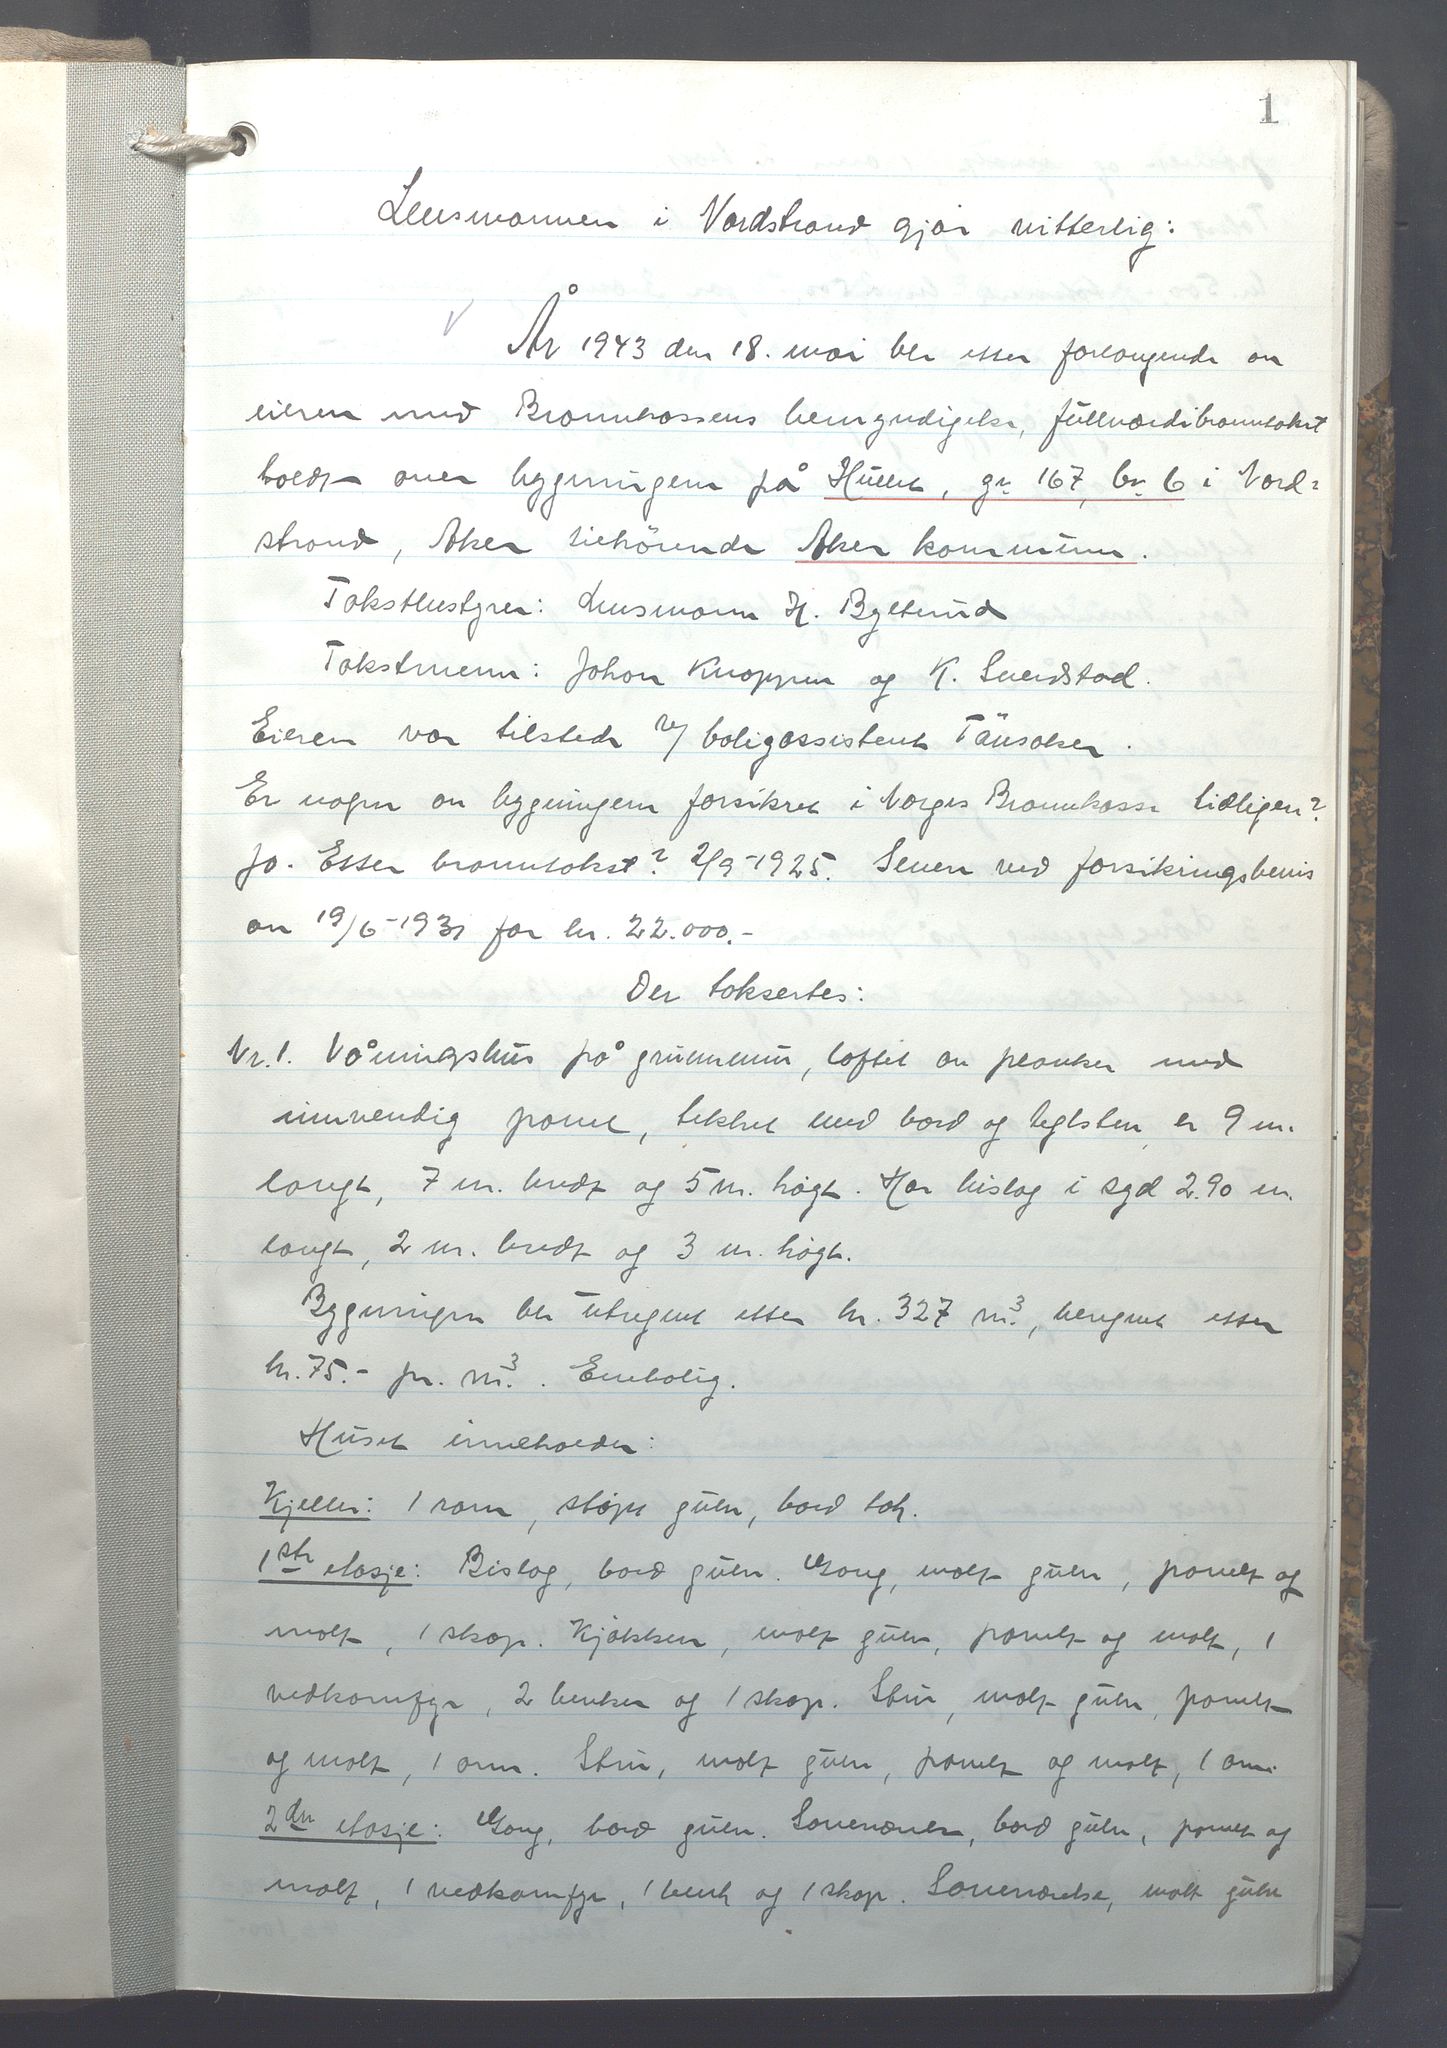 1
Lensmannen i Nordstrand gjør vitterlig:
År 1943 den 18. mai ble etter forlangende av
eieren med Brannkassens bemyndigelse, fullverdibranntakst
holdt over bygningene på Hullet, gr 167, br. 6 i Nord-
strand, Aker tilhørende Aker kommune.
Takstbestyrer: Lensmann H. Bylterud
Takstmenn: Johan Knappen og K. Sverdstad.
Eieren var tilstede v/ boligassistent
Er nogen av bygningene forsikret i Norges Brannkasse tidligere?
Ja. Etter branntakst? 2/9-1925. Senere ved forsikringsbevis
av 19/6-1931 for kr. 22.000.-
Der takseres:
Nr. 1. Våningshus på grunnmur, loftet av planker med
innvendig panel, tekket med bord og teglsten er 9 m.
langt, 7 m. bredt og 5 m. høgt. Har bislag i syd 2.90 m.
langt, 2 m. bredt og 3 m. høgt.
Bygningen ble utregnet etter kr. 327 m³, beregnet etter
kr. 75.- pr. m³. Enebolig.
Huset inneholder:
Kjeller: 1 rom, støpt gulv, bord tak.
1ste etasje: Bislag, bord gulv. Gang, malt gulv, panelt og
malt, 1 skap. Kjøkken, malt gulv, panelt og malt, 1
vedkomfyr, 2 benker og 1 skap. Stue, malt gulv, panelt
og malt, 1 ovn. Stue, malt gulv, panelt og malt, 1 ovn.
2den etasje: Gang, bord gulv. Soveværelse, bord gulv, panelt og
malt, 1 vedkomfyr, 1 benk og 1 skap. Soveværelse, malt gulv